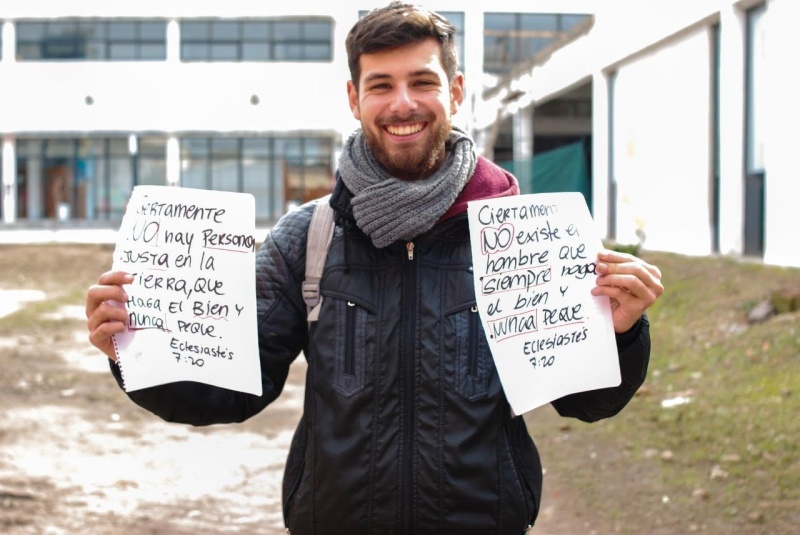 Ciertamente
NO hay Persona
JUSTA en la
TIERRA, QUE
HAGA EL BIEN Y
NUNCA PEQUE.
Eclesiastés
7:20
Ciertamente
NO existe el
hombre que
siempre haga
el bien y
NUNCA PEQUE.
Eclesiastés
7:20